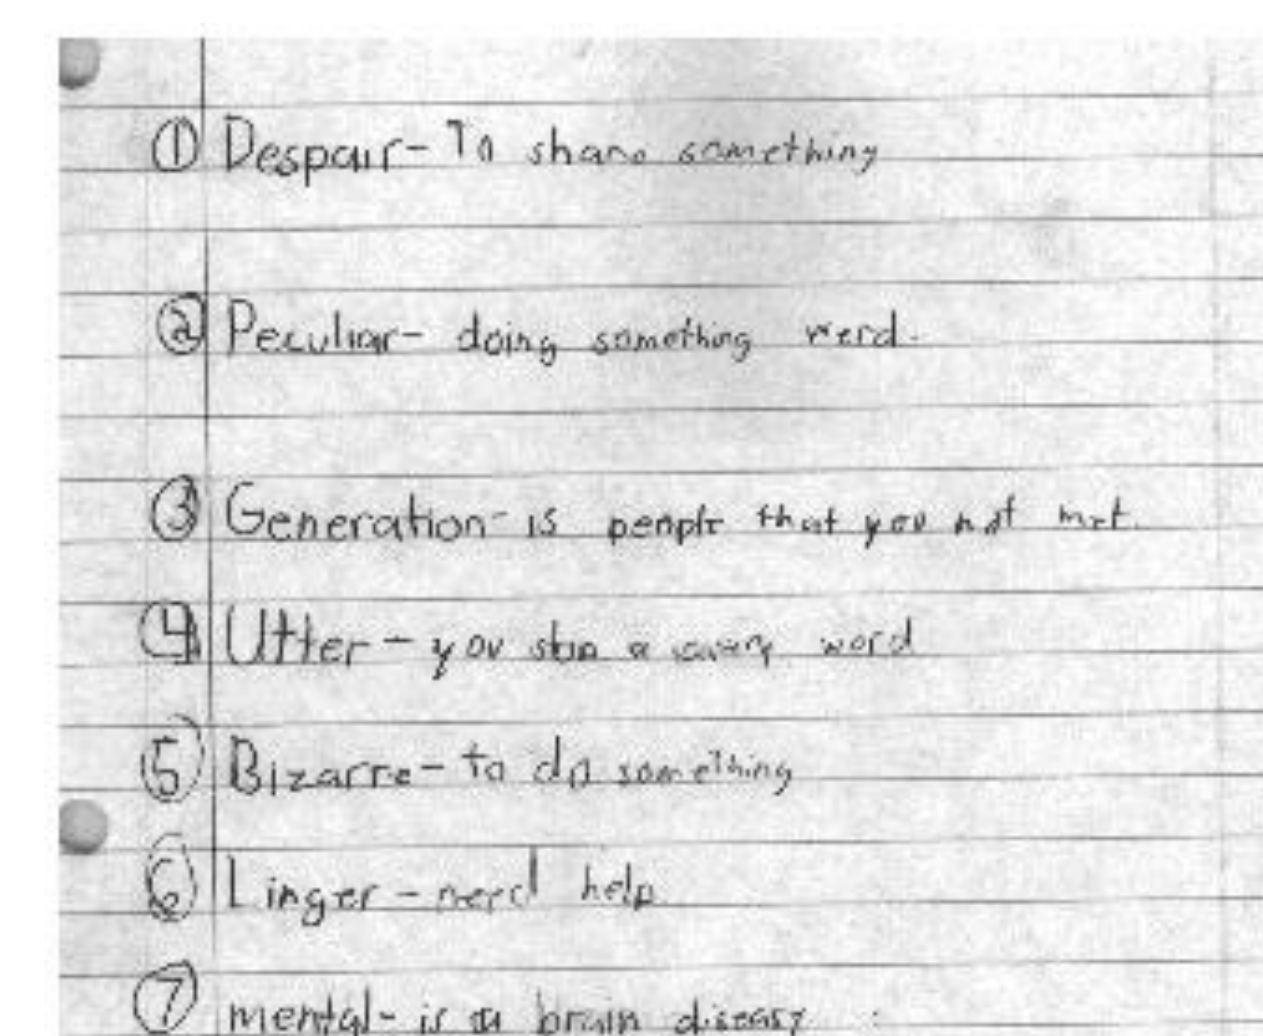 ① Despair- To share something
② Peculiar- doing something werd.
③ Generation- is people that you not met.
④ Utter - you a word
⑤ Bizarre- to do something
⑥ Linger - need help
⑦ mental- is a brain diseasy